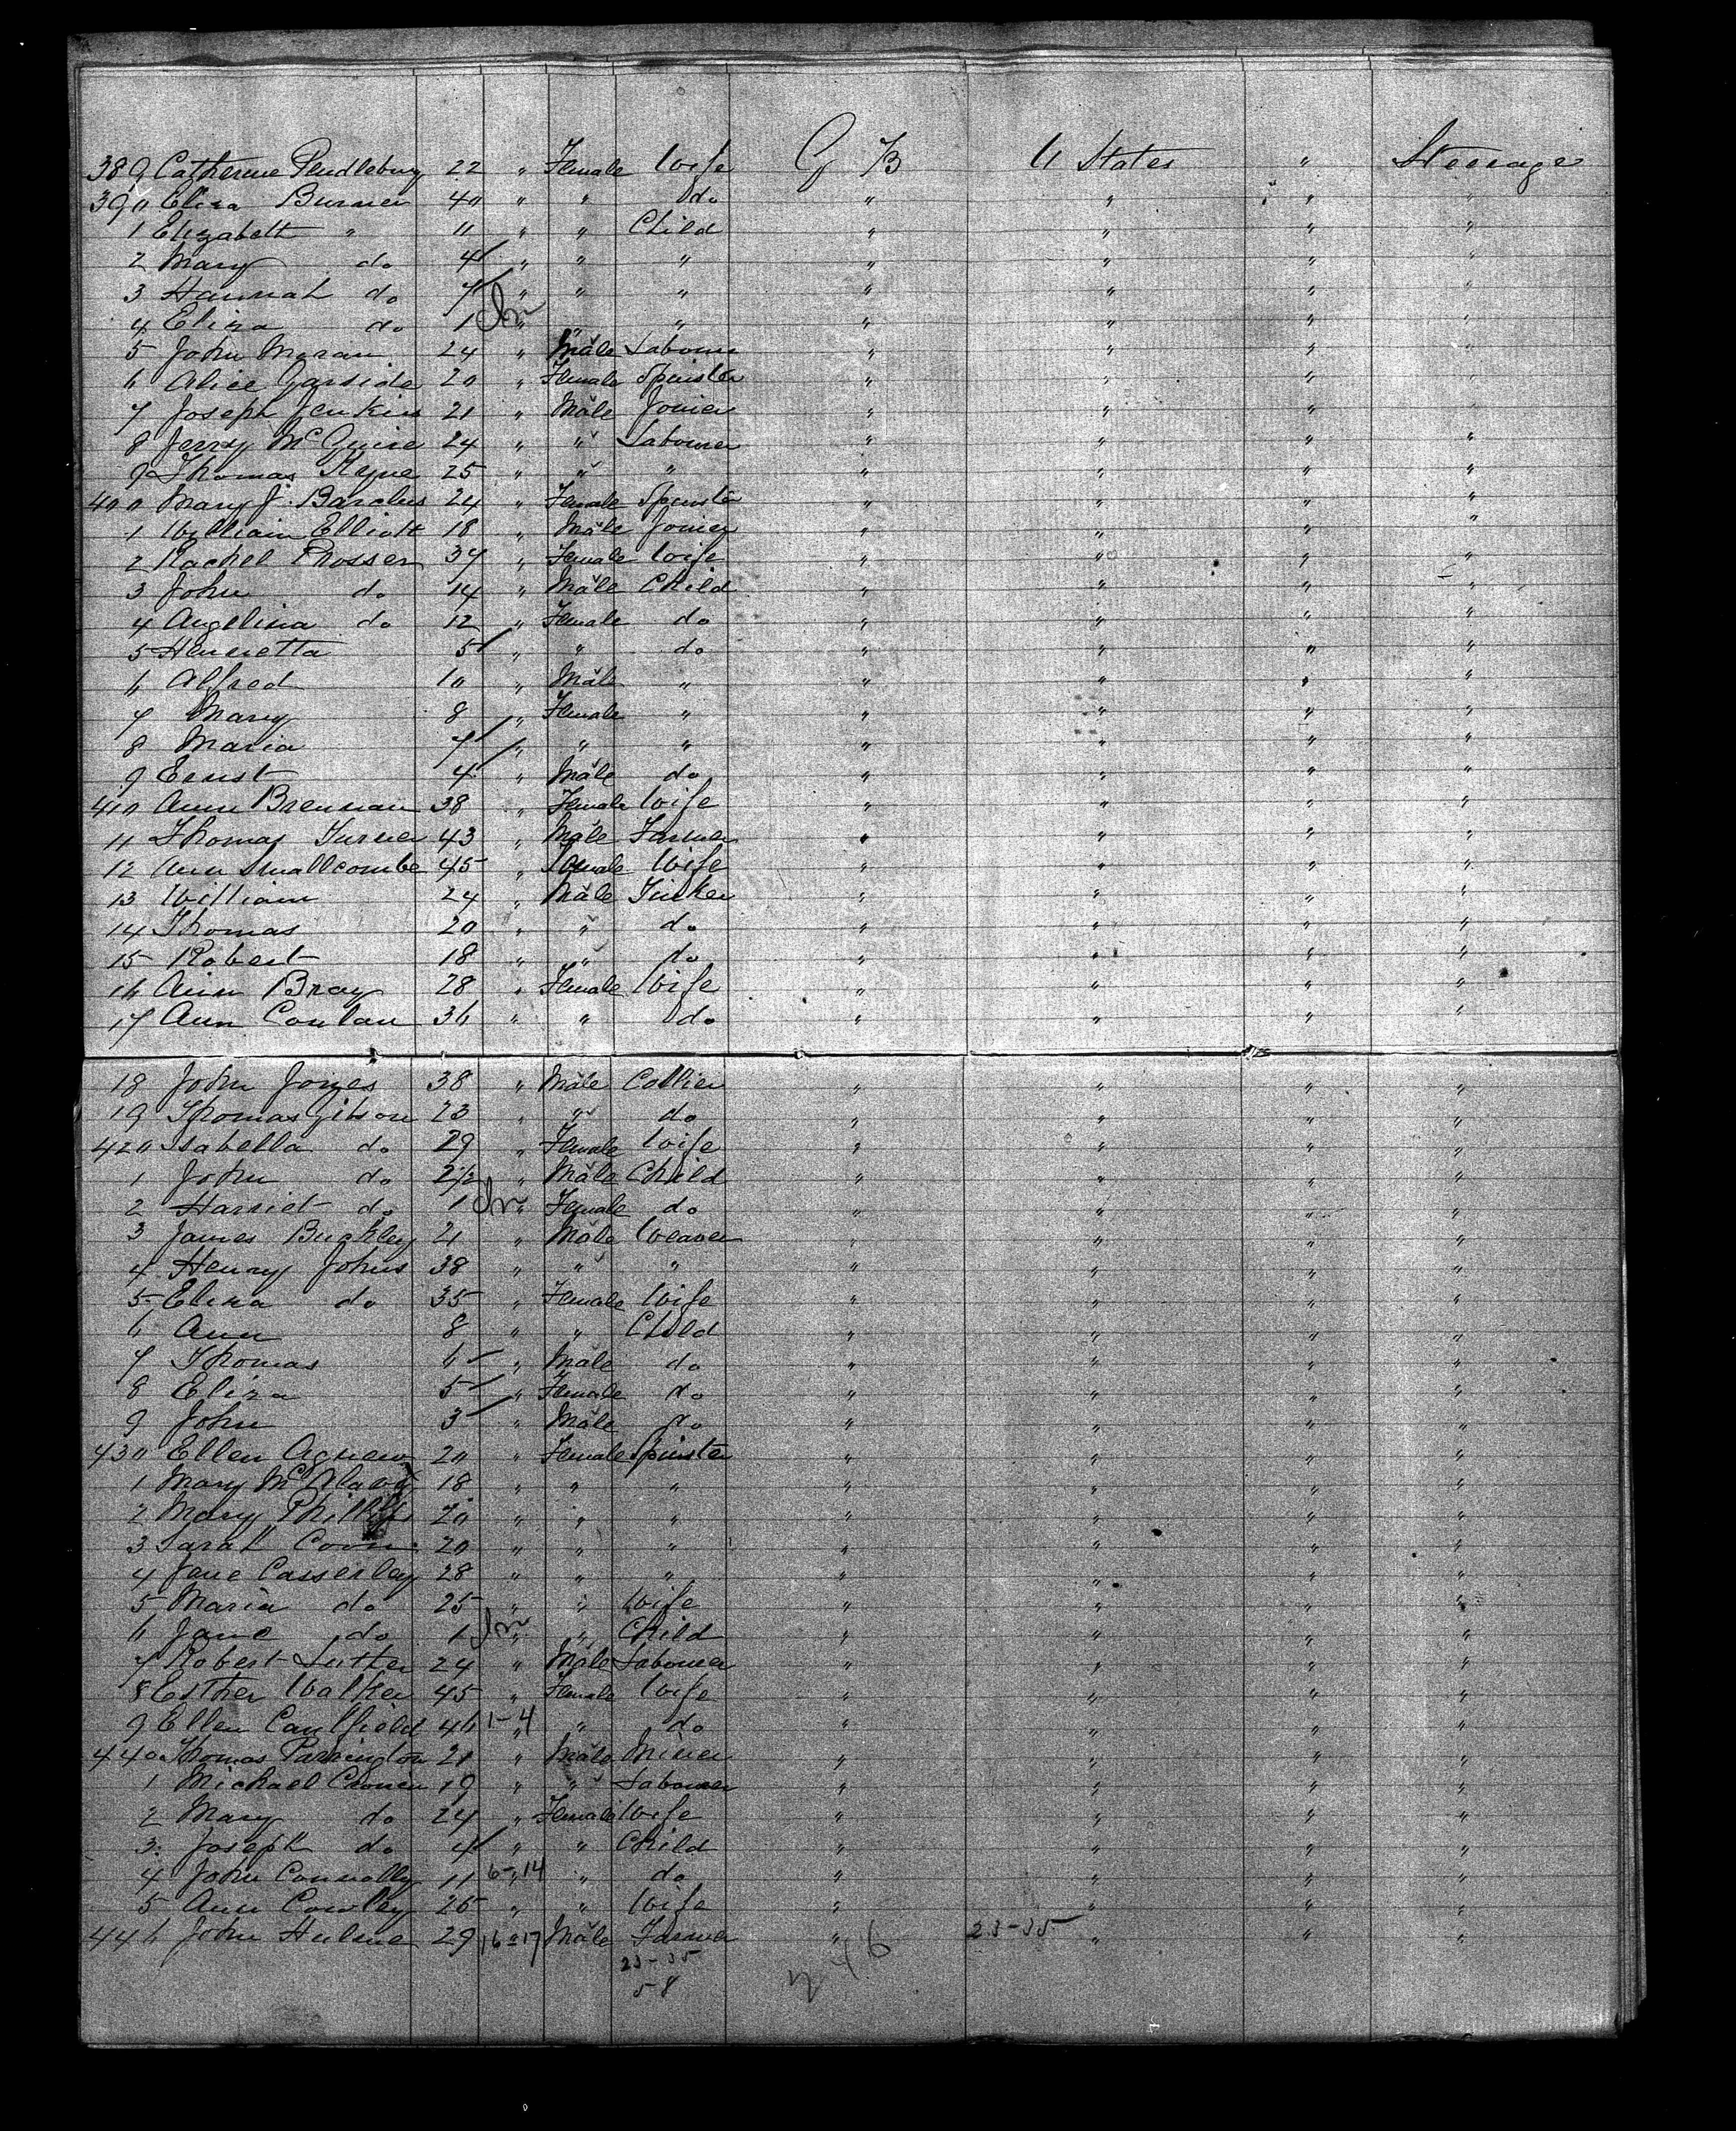 389 Catherine Pendlebury 22 " Female Wife G B U States " Steerage
390 Eliza Burner 40 " " do " " " "
1 Elizabeth " 11 " " Child " " " "
2 Mary do 4 " " " " " " "
3 Hannah do 7 " " " " " " "
4 Eliza do 1 " " " " " " "
5 John Moran 24 " Male Labourer " " " "
6 Alice Garside 20 " Female Spinster " " " "
7 Joseph Jenkins 21 " Male Joiner " " " "
8 Jerry McGuire 24 " " Labourer " " " "
9 Thomas Keyne 25 " " " " " " "
400 Mary J. Barclus 24 " Female Spinster " " " "
1 William Elliott 18 " Male Joiner " " " "
2 Rachel Prosser 37 " Female Wife " " " "
3 John do 14 " Male Child " " " "
4 Angelina do 12 " Female do " " " "
5 Henrietta 5 " " do " " " "
6 Alfred 10 " Male " " " " "
7 Mary 8 " Female " " " " "
8 Maria 7 " " " " " " "
9 Ernst 4 " Male do " " " "
410 Ann Brennan 38 " Female Wife " " " "
11 Thomas Turner 43 " Male Farmer " " " "
12 Ann Smallcombe 45 " Female Wife " " " "
13 William 24 " Male Tinker " " " "
14 Thomas 20 " " do " " " "
15 Robert 18 " " do " " " "
16 Ann Bray 28 " Female Wife " " " "
17 Ann Conlan 36 " " do " " " "
18 John Joizes 38 " Male Collier " " " "
19 Thomas Gibson 23 " " do " " " "
420 Isabella do 29 " Female Wife " " " "
1 John do 2½ " Male Child " " " "
2 Harriet do 1 " Female do " " " "
3 James Buckley 21 " Male Weaver " " " "
4 Henry Johns 38 " " " " " " "
5 Eliza do 35 " Female Wife " " " "
6 Ann 8 " " Child " " " "
7 Thomas 6 " Male do " " " "
8 Eliza 5 " Female do " " " "
9 John 3 " Male do " " " "
430 Ellen Agnew 20 " Female Spinster " " " "
1 Mary 18 " " " " " " "
2 Mary Phillips 20 " " " " " " "
3 Sarah 20 " " " " " " "
4 Jane Casserley 28 " " " " " " "
5 Maria do 25 " " Wife " " " "
6 Jane do 1 " " Child " " " "
7 Robert Luther 24 " Male Labourer " " " "
8 Esther Walker 45 " Female Wife " " " "
9 Ellen Caulfield 46 1-4 " " do " " " "
440 Thomas Parrington 21 " Male Miner " " " "
1 Michael Cronin 19 " " Labourer " " " "
2 Mary do 24 " Female Wife " " " "
3 Joseph do 4 " " Child " " " "
4 John Connolly 11 6-14 " " do " " " "
5 Ann Cowley 26 " " Wife " " " "
446 John Hulme 29 16-17 Male Farmer " 23-35 " " "
23-35
58